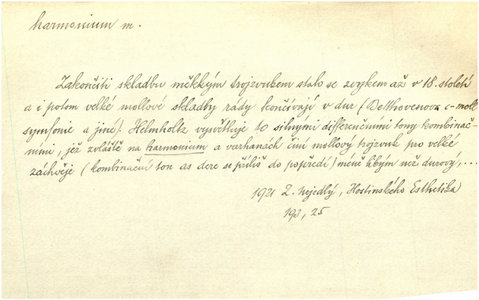 harmonium n.
Zakončiti skladbu měkkým trojzvukem stalo se zvykem až v 18. století
a i potom velké mollové skladby rády končívají v dur (Beethovenova c-moll
symfonie a jiné). Helmholtz vysvětluje to silnými differenčními tony kombinač-
ními, jež zvláště na harmonium a varhanách činí mollový trojzvuk pro velké
záchvěje (kombinační ton as dere se příliš do popředí) méně libým než durový, ...
1921 Z. Nejedlý, Hostinského Esthetika
193, 25